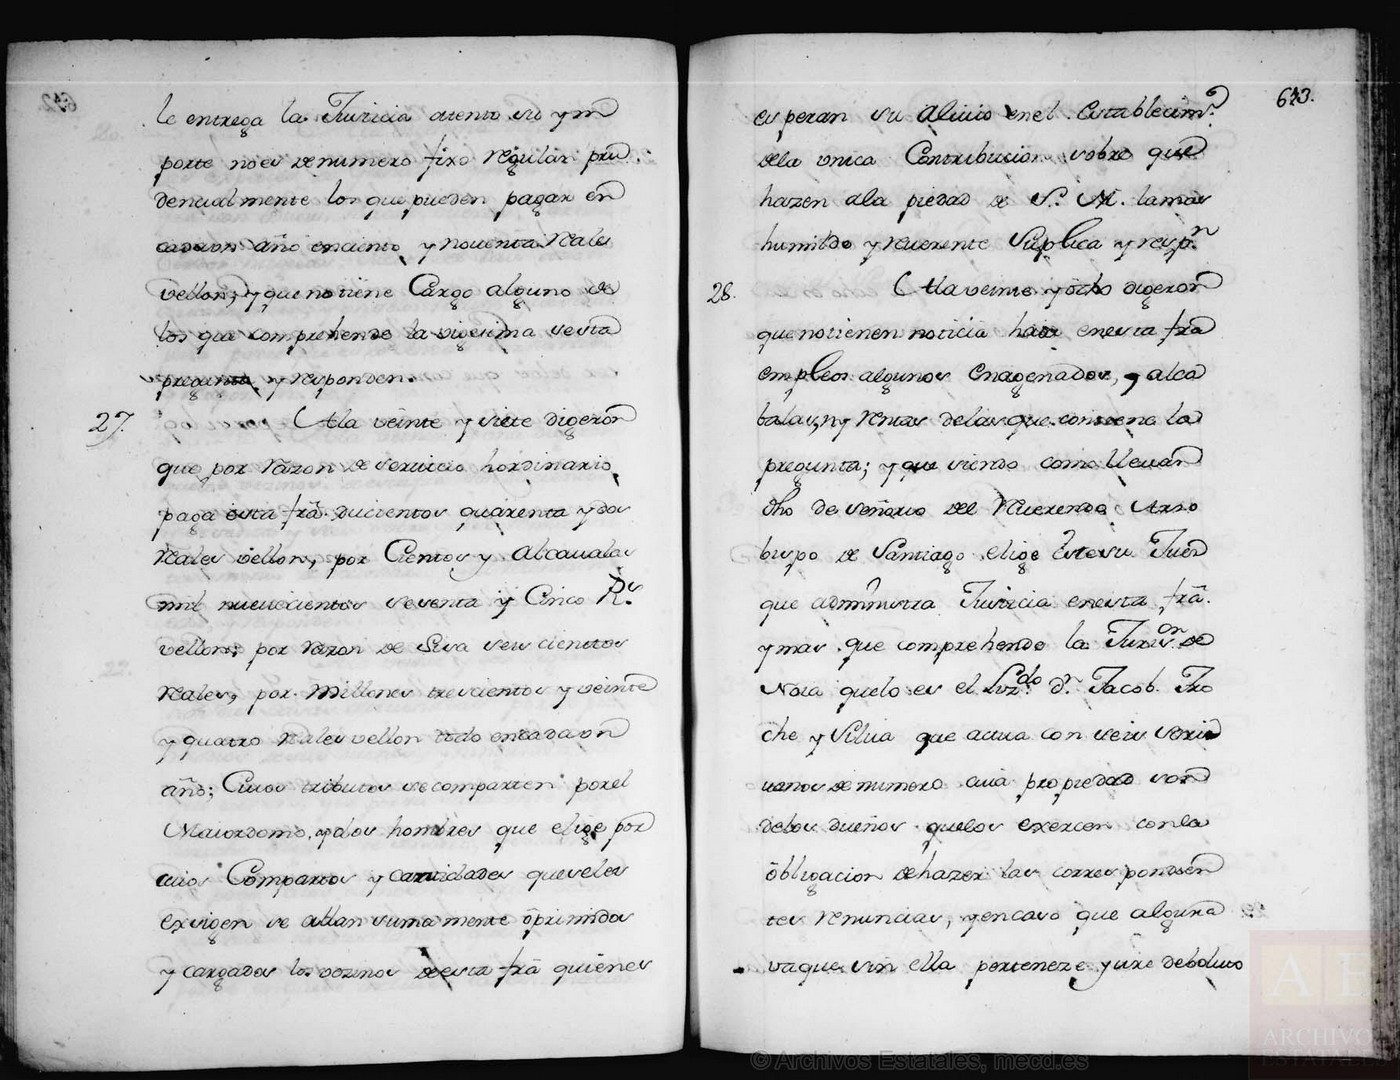 le entrega la Justicia atento su ym
porte no es de numero fixo regular pru
dencialmente los que pueden pagar en
cada un año en ciento y noventa Reales
vellon; y que no tiene Cargo alguno de
los que comprehende la vigesima sexta
pregunta y responden.
27. A la veinte y siete digeron
que por razon de servicio hordinario
paga esta frã. ducientos quarenta y dos
Reales vellon, por Cientos y Alcavalas
mil nuevecientos sesenta y Cinco R.s
vellon; por razon de Sisa seis cientos
Reales, por Millones trescientos y veinte
y quatro Reales vellon todo en cada un
año; Cuios tributos se comparten por el
Maiordomo, y dos hombres que elige por
cuios Compartos y cantidades que se les
exsigen se allan suma mente oprimidos
y cargados los vezinos de esta frã quienes
643.
esperan su Alivio en el Establecim.to
de la unica Contribucion sobre que
hazen a la piedad de S. M. la mas
humilde y reverente Suplica y resp.n
28. A la veinte y ocho digeron
que no tienen noticia haia en esta frã
empleos algunos Enagenados, y alca
balas, ny rentas de las que contiene la
pregunta; y que siendo como llevan
dho de señorio del Reverendo Arzo
bispo de Santiago elige Este su Juez
que administra Justicia en esta frã.
y mas que comprehende la Juris.on de
Noia quelo es el Liz.do d.n Jacob Tro
che y Silva que actua con seis Escri
uanos de numero cuia propiedad son
de los dueños que los exercen con la
obligacion de hazer las correspondien
tes renuncias, y en caso que alguna
vaque sin ella perteneze y ure deboluto